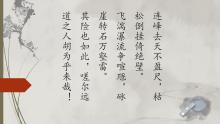 连峰去天不盈尺，枯
松倒挂倚绝壁。
飞湍瀑流争喧豗，砯
崖转石万壑雷。
其险也如此，嗟尔远
道之人胡为乎来哉！